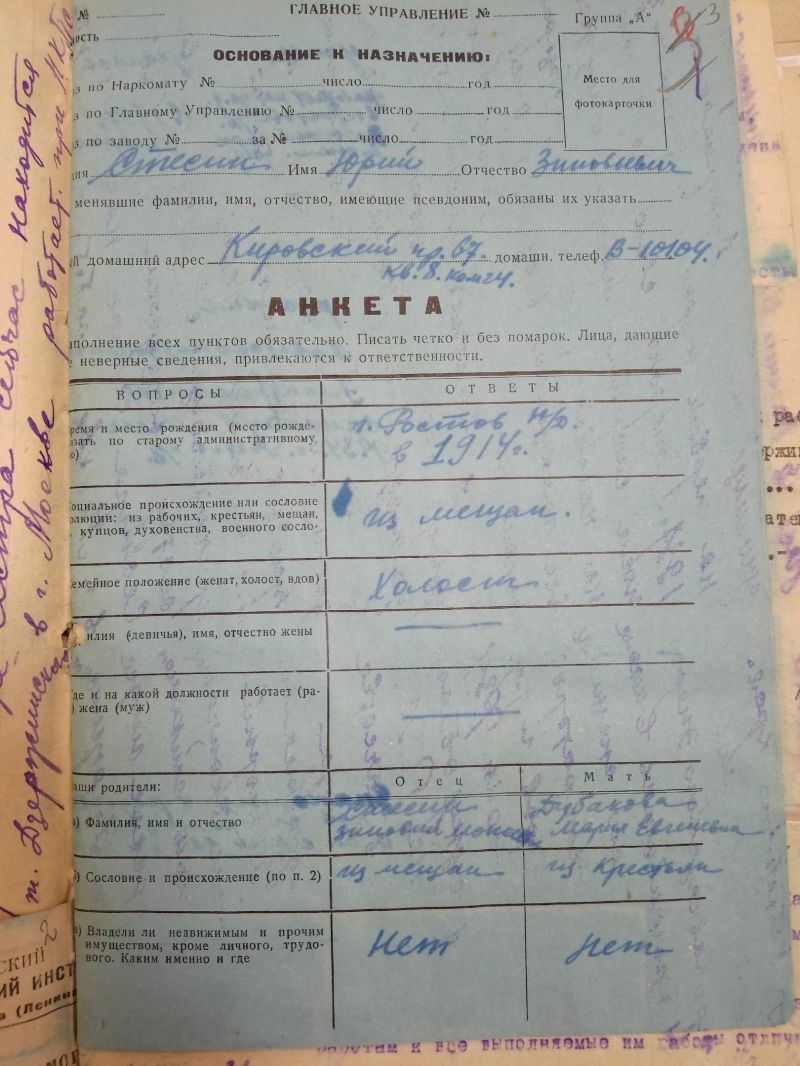 №
ГЛАВНОЕ УПРАВЛЕНИЕ №
Группа „А"
3
ность
ОСНОВАНИЕ К НАЗНАЧЕНИЮ:
з по Наркомату № число год
з по Главному Управлению № число год
з по заводу № за № число год
Место для
фотокарточки
ия Стесин Имя Юрий Отчество Зиновьевич
менявшие фамилии, имя, отчество, имеющие псевдоним, обязаны их указать
й домашний адрес Кировский пр. 67. домашн. телеф. В-10104.
кв. 8. ком 24.
АНКЕТА
аполнение всех пунктов обязательно. Писать четко и без помарок. Лица, дающие
е неверные сведения, привлекаются к ответственности.
ВОПРОСЫ ОТВЕТЫ
ремя и место рождения (место рожде-
азать по старому административному
ю)
г. Ростов н/Д.
в 1914г.
оциальное происхождение или сословие
олюции: из рабочих, крестьян, мещан,
купцов, духовенства, военного сосло-
из мещан.
емейное положение (женат, холост, вдов)
Холост
илия (девичья), имя, отчество жены
де и на какой должности работает (ра-
) жена (муж)
аши родители: Отец Мать
а) Фамилия, имя и отчество
Стесин
Зиновий
Дубакова
Мария Евгеньевна
) Сословие и происхождение (по п. 2) из мещан из Крестьян
в) Владели ли недвижимым и прочим
имуществом, кроме личного, трудо-
вого. Каким именно и где
Нет Нет
сестра сейчас находится
в г. Москве работает. при
т. Дзержинска
2
СКИЙ
ИЙ ИНСТ
работам и все выполняемые им работы отлича